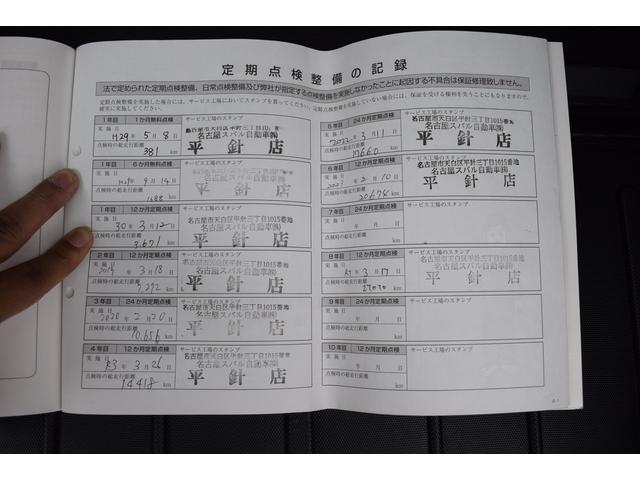 定期点検整備の記録
法で定められた定期点検整備、日常点検整備及び弊社が指定する点検整備を実施しなかったことに起因する不具合は保証修理致しません。
定期点検整備を実施した場合には、サービス工場においてスタンプを貰ってください。定期点検整備を実施していない場合には、保証を受ける権利を失うことにもなりますので、
確実に実施してください。
1年目 1か月無料点検 サービス工場のスタンプ
実施日
H29年5月8日
点検時の総走行距離
381 km
名古屋スバル自動車㈱
平針店
1年目 6か月無料点検 サービス工場のスタンプ
実施日
H29年9月14日
点検時の総走行距離
km
1年目 12か月定期点検 サービス工場のスタンプ
実施日
30年3月12日
点検時の総走行距離
3,671 km
名古屋市天白区平針三丁目1015番地
名古屋スバル自動車㈱
平針店
2年目 24か月定期点検 サービス工場のスタンプ
実施日
2019年3月18日
点検時の総走行距離
7,272 km
名古屋市天白区平針三丁目1015番地
名古屋スバル自動車㈱
平針店
3年目 12か月定期点検 サービス工場のスタンプ
実施日
2020年2月20日
点検時の総走行距離
10,656 km
名古屋市天白区平針三丁目1015番地
名古屋スバル自動車㈱
平針店
4年目 12か月定期点検 サービス工場のスタンプ
実施日
R3年3月26日
点検時の総走行距離
14418 km
名古屋市天白区平針三丁目1015番地
名古屋スバル自動車㈱
平針店
5年目 24か月定期点検 サービス工場のスタンプ
実施日
2022年3月11日
点検時の総走行距離
17660 km
名古屋市天白区平針三丁目1015番地
名古屋スバル自動車㈱
平針店
6年目 12か月定期点検 サービス工場のスタンプ
実施日
2023年2月10日
点検時の総走行距離
20674 km
名古屋市天白区平針三丁目1015番地
名古屋スバル自動車㈱
平針店
7年目 24か月定期点検 サービス工場のスタンプ
実施日
年月日
点検時の総走行距離
km
8年目 12か月定期点検 サービス工場のスタンプ
実施日
年3月17日
点検時の総走行距離
km
名古屋市天白区平針三丁目1015番地
名古屋スバル自動車㈱
平針店
9年目 24か月定期点検 サービス工場のスタンプ
実施日
年月日
点検時の総走行距離
km
10年目 12か月定期点検 サービス工場のスタンプ
実施日
年月日
点検時の総走行距離
km